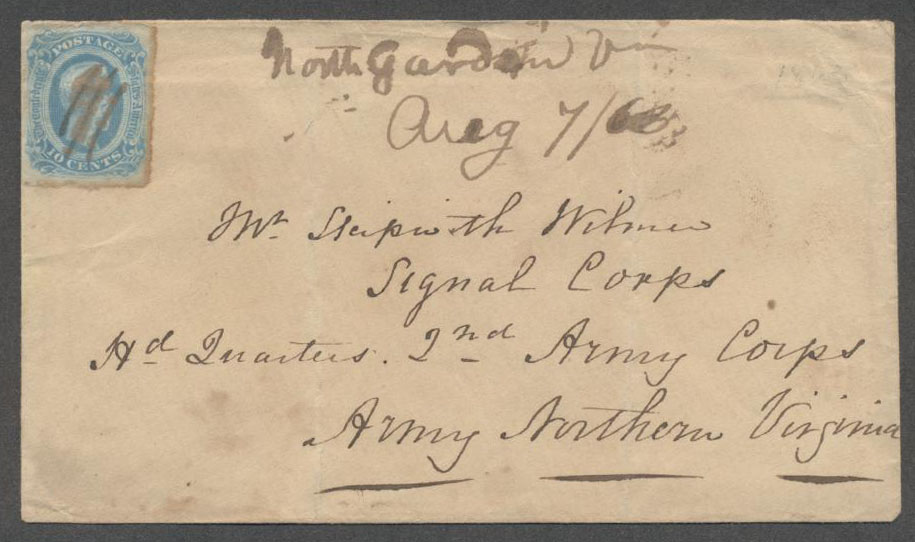 POSTAGE
The Confederate States of America
10 CENTS
North Garden Va
Aug 7/63
Mr. Skipwith Wilmer
Signal Corps
Hd Quarters. 2nd Army Corps
Army Northern Virginia